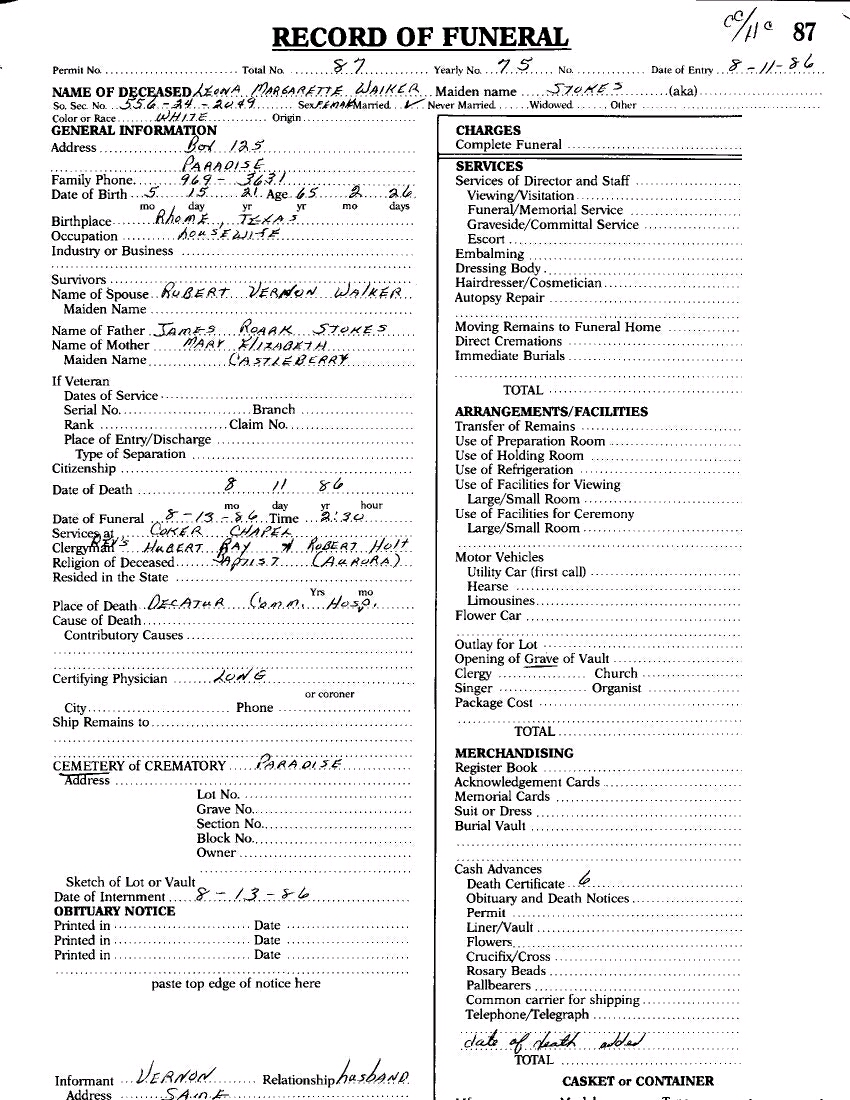 CC/11C 87
RECORD OF FUNERAL
Permit No. Total No. 87 Yearly No. 75 No. Date of Entry 8-11-86
NAME OF DECEASED LEONA MARGARETTE WALKER Maiden name STOKES (aka)
So. Sec. No. 556-24-2049 Sex FEMALE Married ✓ Never Married Widowed Other
Color or Race WHITE Origin
GENERAL INFORMATION
Address Box 125
PARADISE
Family Phone 969-3631
Date of Birth 5 15 21 Age 65 2 26
mo day yr yr mo days
Birthplace RHOME, TEXAS
Occupation HOUSEWIFE
Industry or Business
Survivors
Name of Spouse RUBERT VERNON WALKER
Maiden Name
Name of Father JAMES ROARK STOKES
Name of Mother MARY ELIZABETH
Maiden Name CASTLEBERRY
If Veteran
Dates of Service
Serial No. Branch
Rank Claim No.
Place of Entry/Discharge
Type of Separation
Citizenship
Date of Death 8 11 86
mo day yr hour
Date of Funeral 8-13-86 Time 2:30
Services at COKER CHAPEL
Clergyman REV'S HUBERT RAY & ROBERT HOLT
Religion of Deceased BAPTIST (AURORA)
Resided in the State
Yrs mo
Place of Death DECATUR Comm. Hosp.
Cause of Death
Contributory Causes
Certifying Physician LONG
or coroner
City Phone
Ship Remains to
CEMETERY of CREMATORY PARADISE
Address
Lot No.
Grave No.
Section No.
Block No.
Owner
Sketch of Lot or Vault
Date of Internment 8-13-86
OBITUARY NOTICE
Printed in Date
Printed in Date
Printed in Date
paste top edge of notice here
Informant VERNON Relationship husbAND
Address SAME
CHARGES
Complete Funeral
SERVICES
Services of Director and Staff
Viewing/Visitation
Funeral/Memorial Service
Graveside/Committal Service
Escort
Embalming
Dressing Body
Hairdresser/Cosmetician
Autopsy Repair
Moving Remains to Funeral Home
Direct Cremations
Immediate Burials
TOTAL
ARRANGEMENTS/FACILITIES
Transfer of Remains
Use of Preparation Room
Use of Holding Room
Use of Refrigeration
Use of Facilities for Viewing
Large/Small Room
Use of Facilities for Ceremony
Large/Small Room
Motor Vehicles
Utility Car (first call)
Hearse
Limousines
Flower Car
Outlay for Lot
Opening of Grave of Vault
Clergy Church
Singer Organist
Package Cost
TOTAL
MERCHANDISING
Register Book
Acknowledgement Cards
Memorial Cards
Suit or Dress
Burial Vault
Cash Advances
Death Certificate 6
Obituary and Death Notices
Permit
Liner/Vault
Flowers
Crucifix/Cross
Rosary Beads
Pallbearers
Common carrier for shipping
Telephone/Telegraph
date of death added
TOTAL
CASKET or CONTAINER